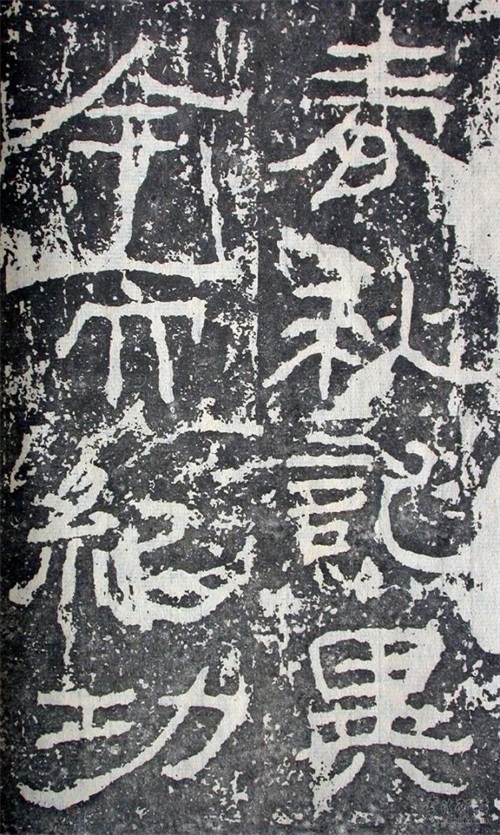 春秋記異
今而紀功